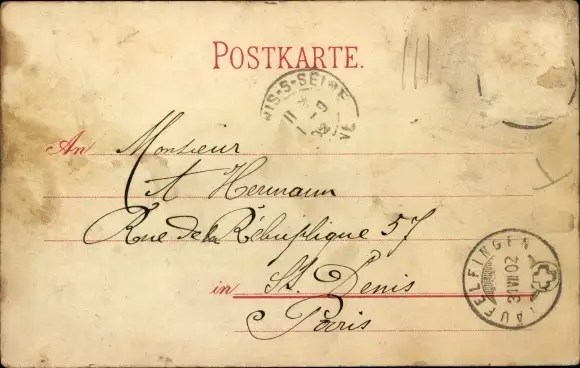 POSTKARTE.
NIS-S-SEINE
An Monsieur
A Hermann
Rue de la Rébuplique 57
in St. Denis
Paris
LÄUFELFINGEN
31 VII 02